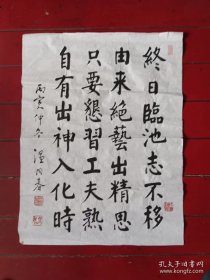 終日臨池志不移
由來絕藝出精思
只要懇習工夫熟
自有出神入化時
丙寅仲冬